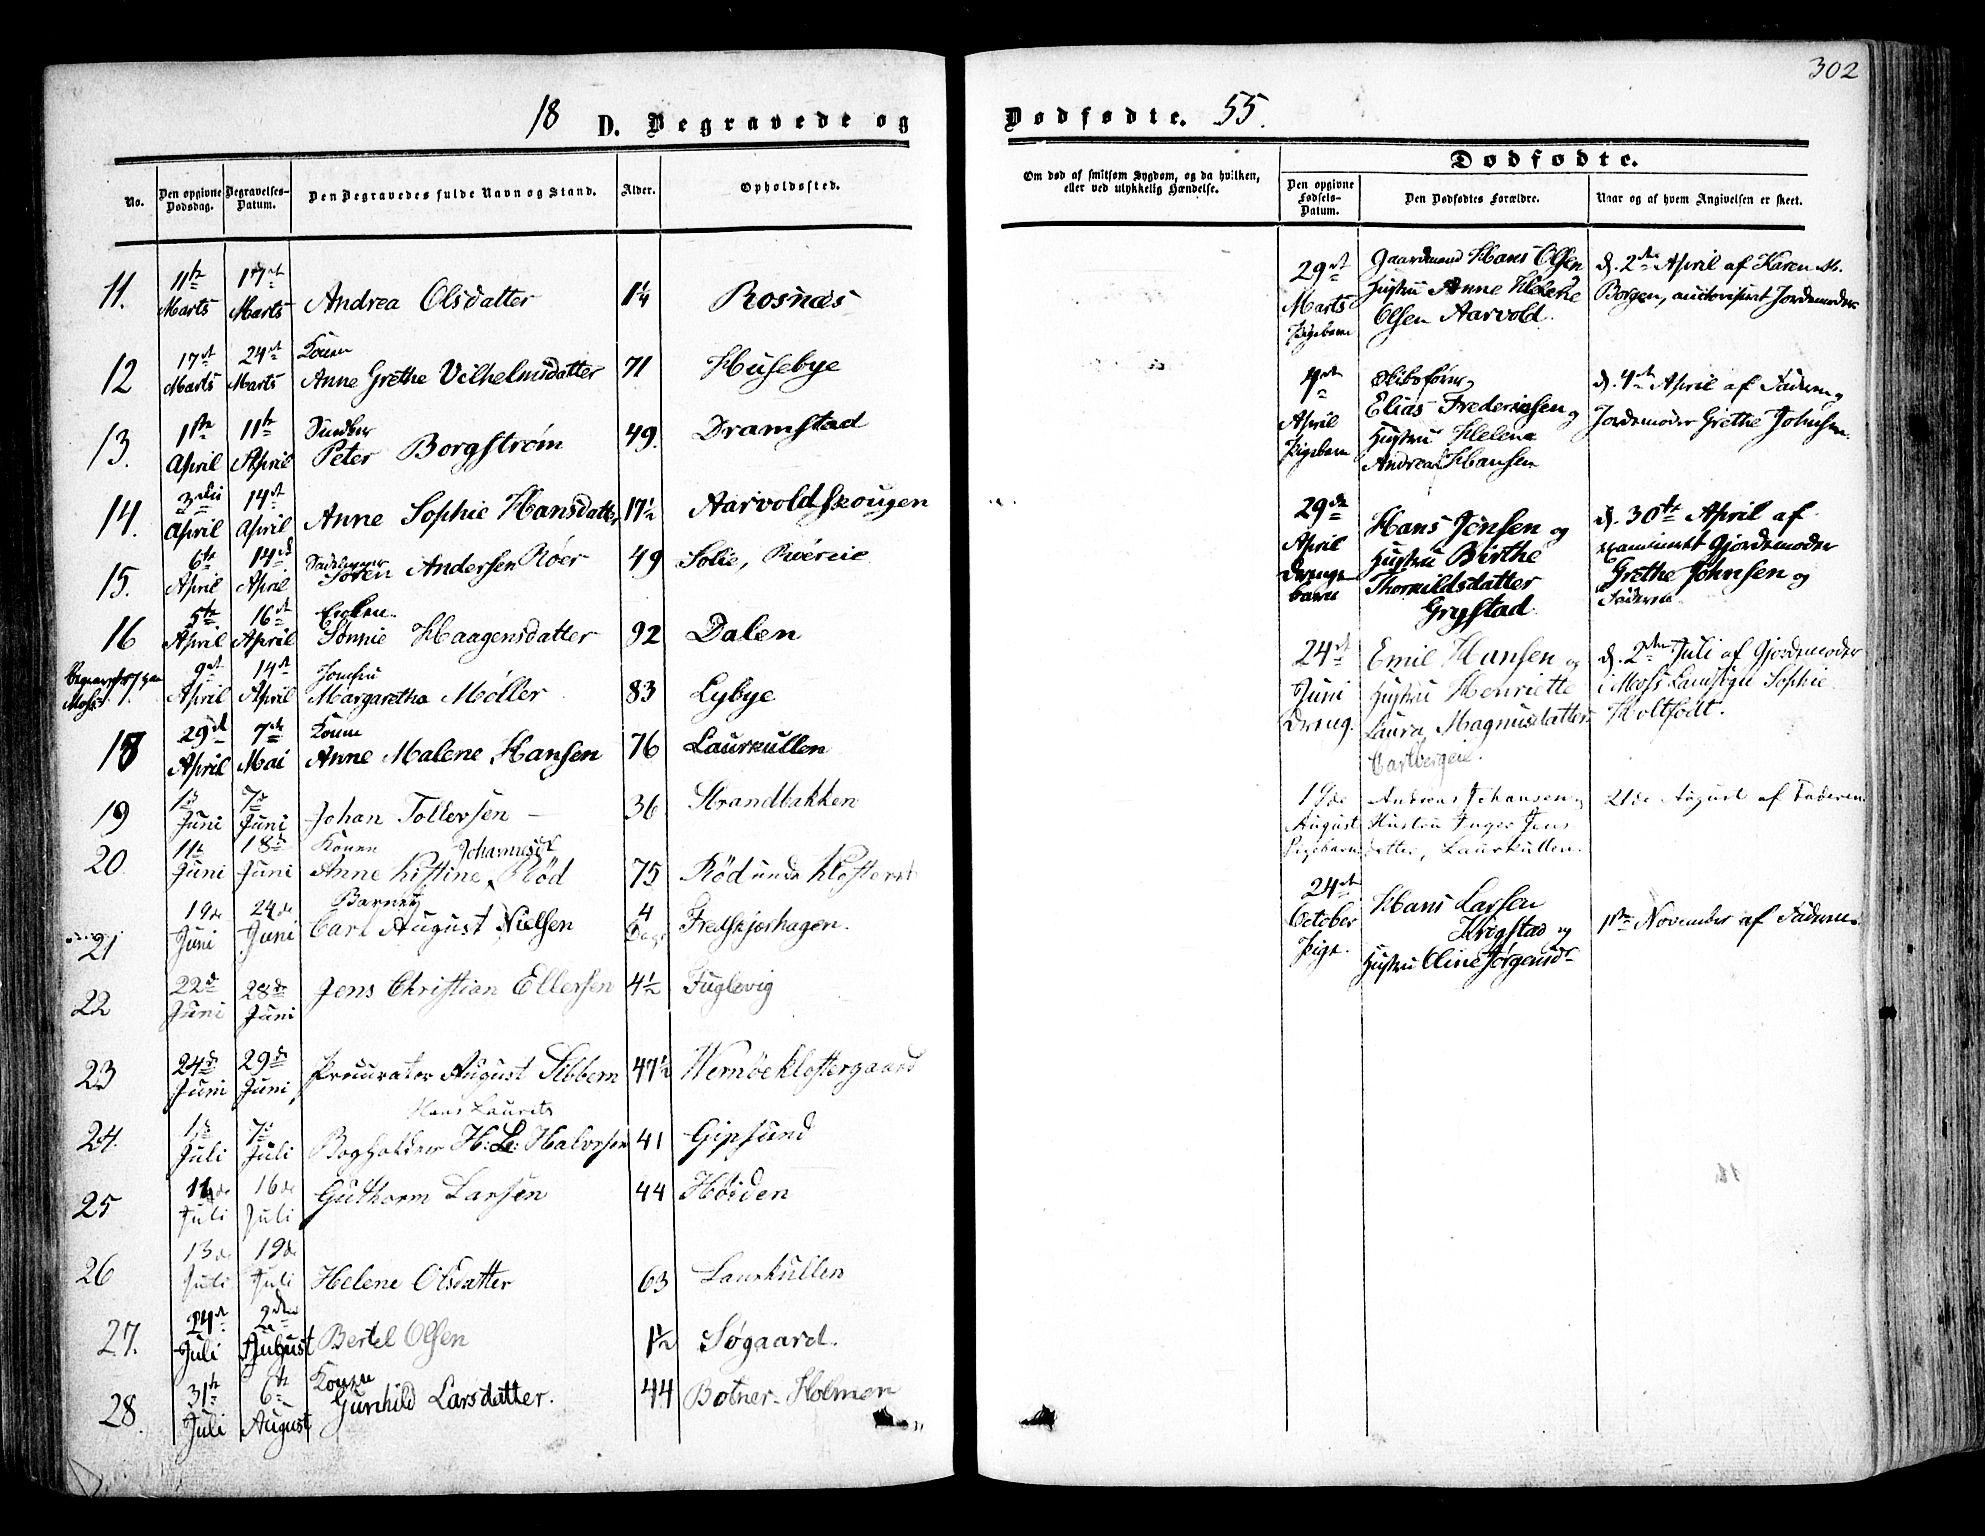 302
18 D. Begravede og Dødfødte. 55.
No.
Den opgivne Dødsdag.
Begravelses-Datum.
Den Begravedes fulde Navn og Stand.
Alder.
Opholdssted.
Om død af smitsom Sygdom, og da hvilken,
eller ved ulykkelig Hændelse.
Dødfødte.
Den opgivne Fødsels-Datum.
Den Dødfødtes Forældre.
Naar og af hvem Angivelsen er skeet.
11. 11te Marts 17de Marts Andrea Olsdatter 1¼ Rosnæs
12 17de Marts 24de Marts Konen Anne Grethe Vilhelmsdatter 71 Husebye
13. 1ste April 11te April Peter Borgstrøm 49. Dramstad
14. 3die April 14de April Anne Sophie Hansdatter 17½ Aarvoldskougen
15. 6te April 14de April Søren Andersen Röer 49 Solie,
16 5te April 16de April Enken Haagensdatter 92 Dalen
Moss. 9de April 14de April Jomfru Margaretha Møller 83 Lybye
18 29de April 7de Mai Konen Anne Malene Hansen 76 Laurkullen
19 1s Juni 7d Juni Johan Tollersen 36 Strandbakken
20 11te Juni 18de Juni Konen Anne Kistine Johannesd. Rød 75 Rød under Klosteret
21 19de Juni 24de Juni Barnet Carl August Nielsen 4 Dage
22 22d Juni 28de Juni Jens Christian Ellefsen 4½ Fuglevig
23 24de Juni 29de Juni Procurator August Sibbern 47½ Wernøe Klostergaard
24. 1s Juli 7de Juli Hans Laurits
Bogholder H: L: Halvorsen 41 Gipsund
25 11de Juli 16de Juli Guthorm Larsen 44 Høiden
26 13de Juli 19de Juli Helene Olsdatter 63 Laurkullen
27. 24de Juli 2den August Bertel Olsen 1½ Søgaard.
28. 31te Juli 6te August Konen Gunhild Larsdatter. 44 Botner-Holmen
29de Marts Pigebarn
Gaardmand Hans Olsen
Hustru Anne Helene
Olsen Aarvold.
d. 2den April af Karen M.
Borgen, auctoriseret Jordemoder
4de April Pigebarn
Elias Frederiksen og
Hustru Helena
Andrea Hansen
d. 4de April af Faderen og
Jordemoder Grethe Johnsen.
29de April Drengebarn
Hans Jensen og
Hustru Birthe
Thorkildsdatter
Grystad.
d. 30te April af
examineret Gjordemoder
Grethe Johnsen og
Faderen.
24de Juni Dreng.
Emil Hansen og
Hustru Henriette
Laura Magnusdatter
Carlbergeie.
d. 2den Juli af Gjordemoder
i Moss Sophie
Holtfodt.
19de August Pigebarn
Andreas Johansen og
Hustru Inger Jens
datter, Laurkullen.
21de August af Faderen
24de October Pige.
Hans Larsen
Krogstad og
Hustru Oline Jørgensdr
1ste November af Faderen.